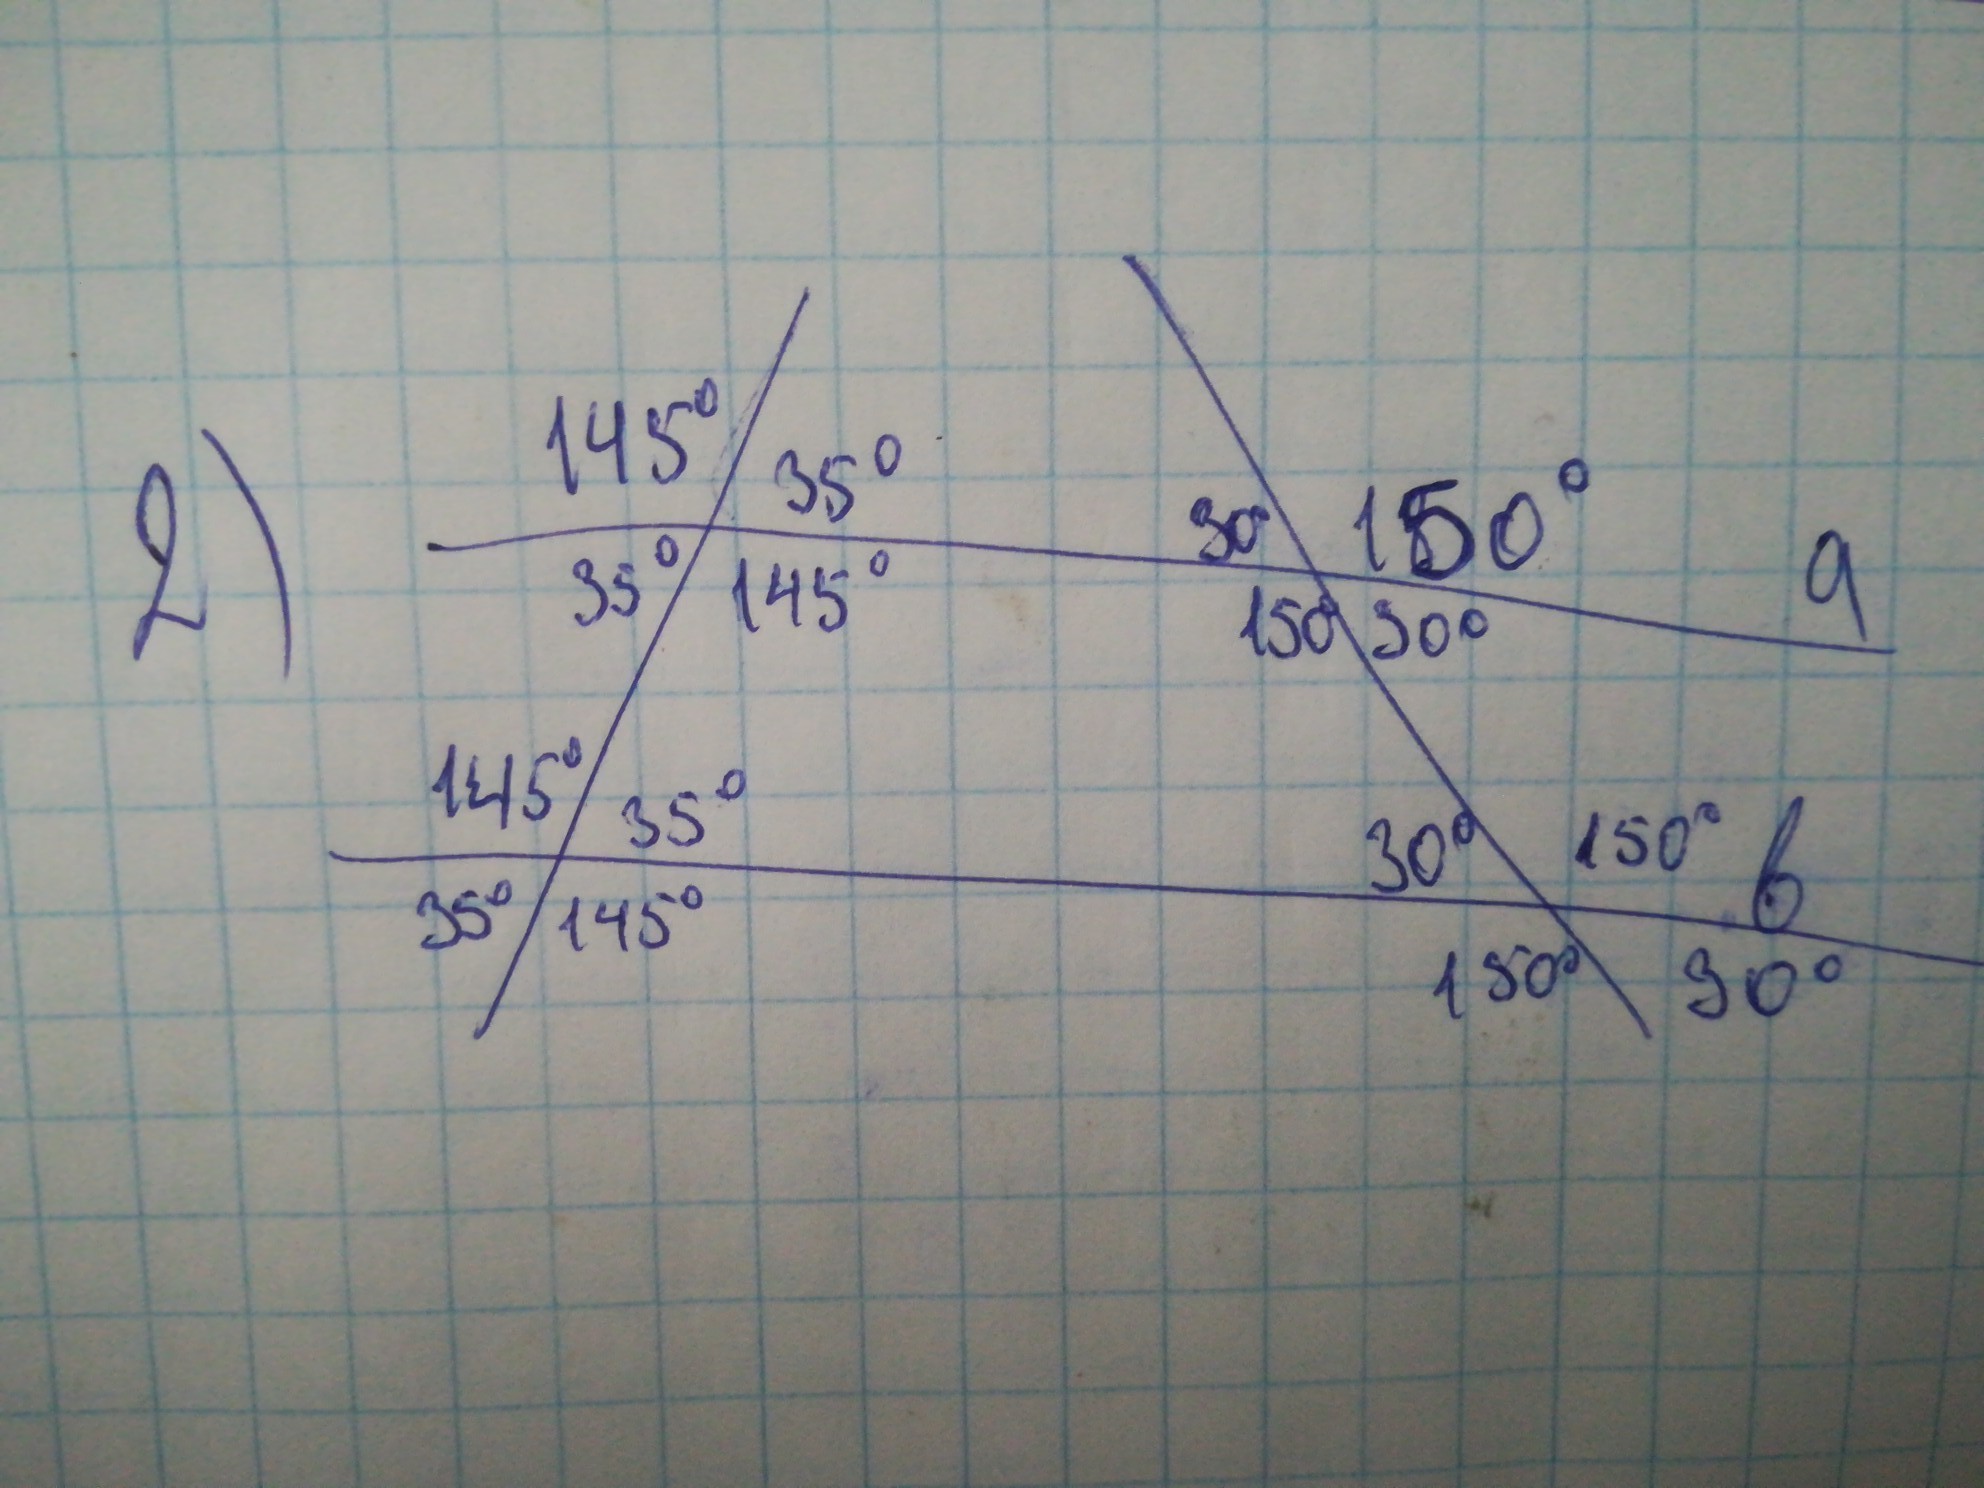 2)
145° 35°
35° 145°
30° 150° a
150° 30°
145° 35°
35° 145°
30° 150° b
150° 30°